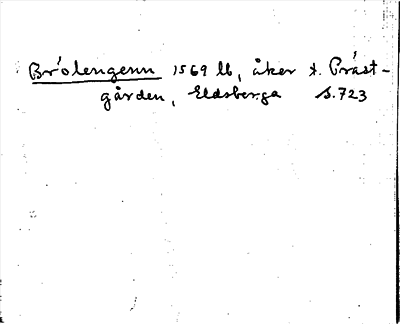 Brólengenn 1569 lb, åker t. Präst-
gården, Eldsberga s. 723